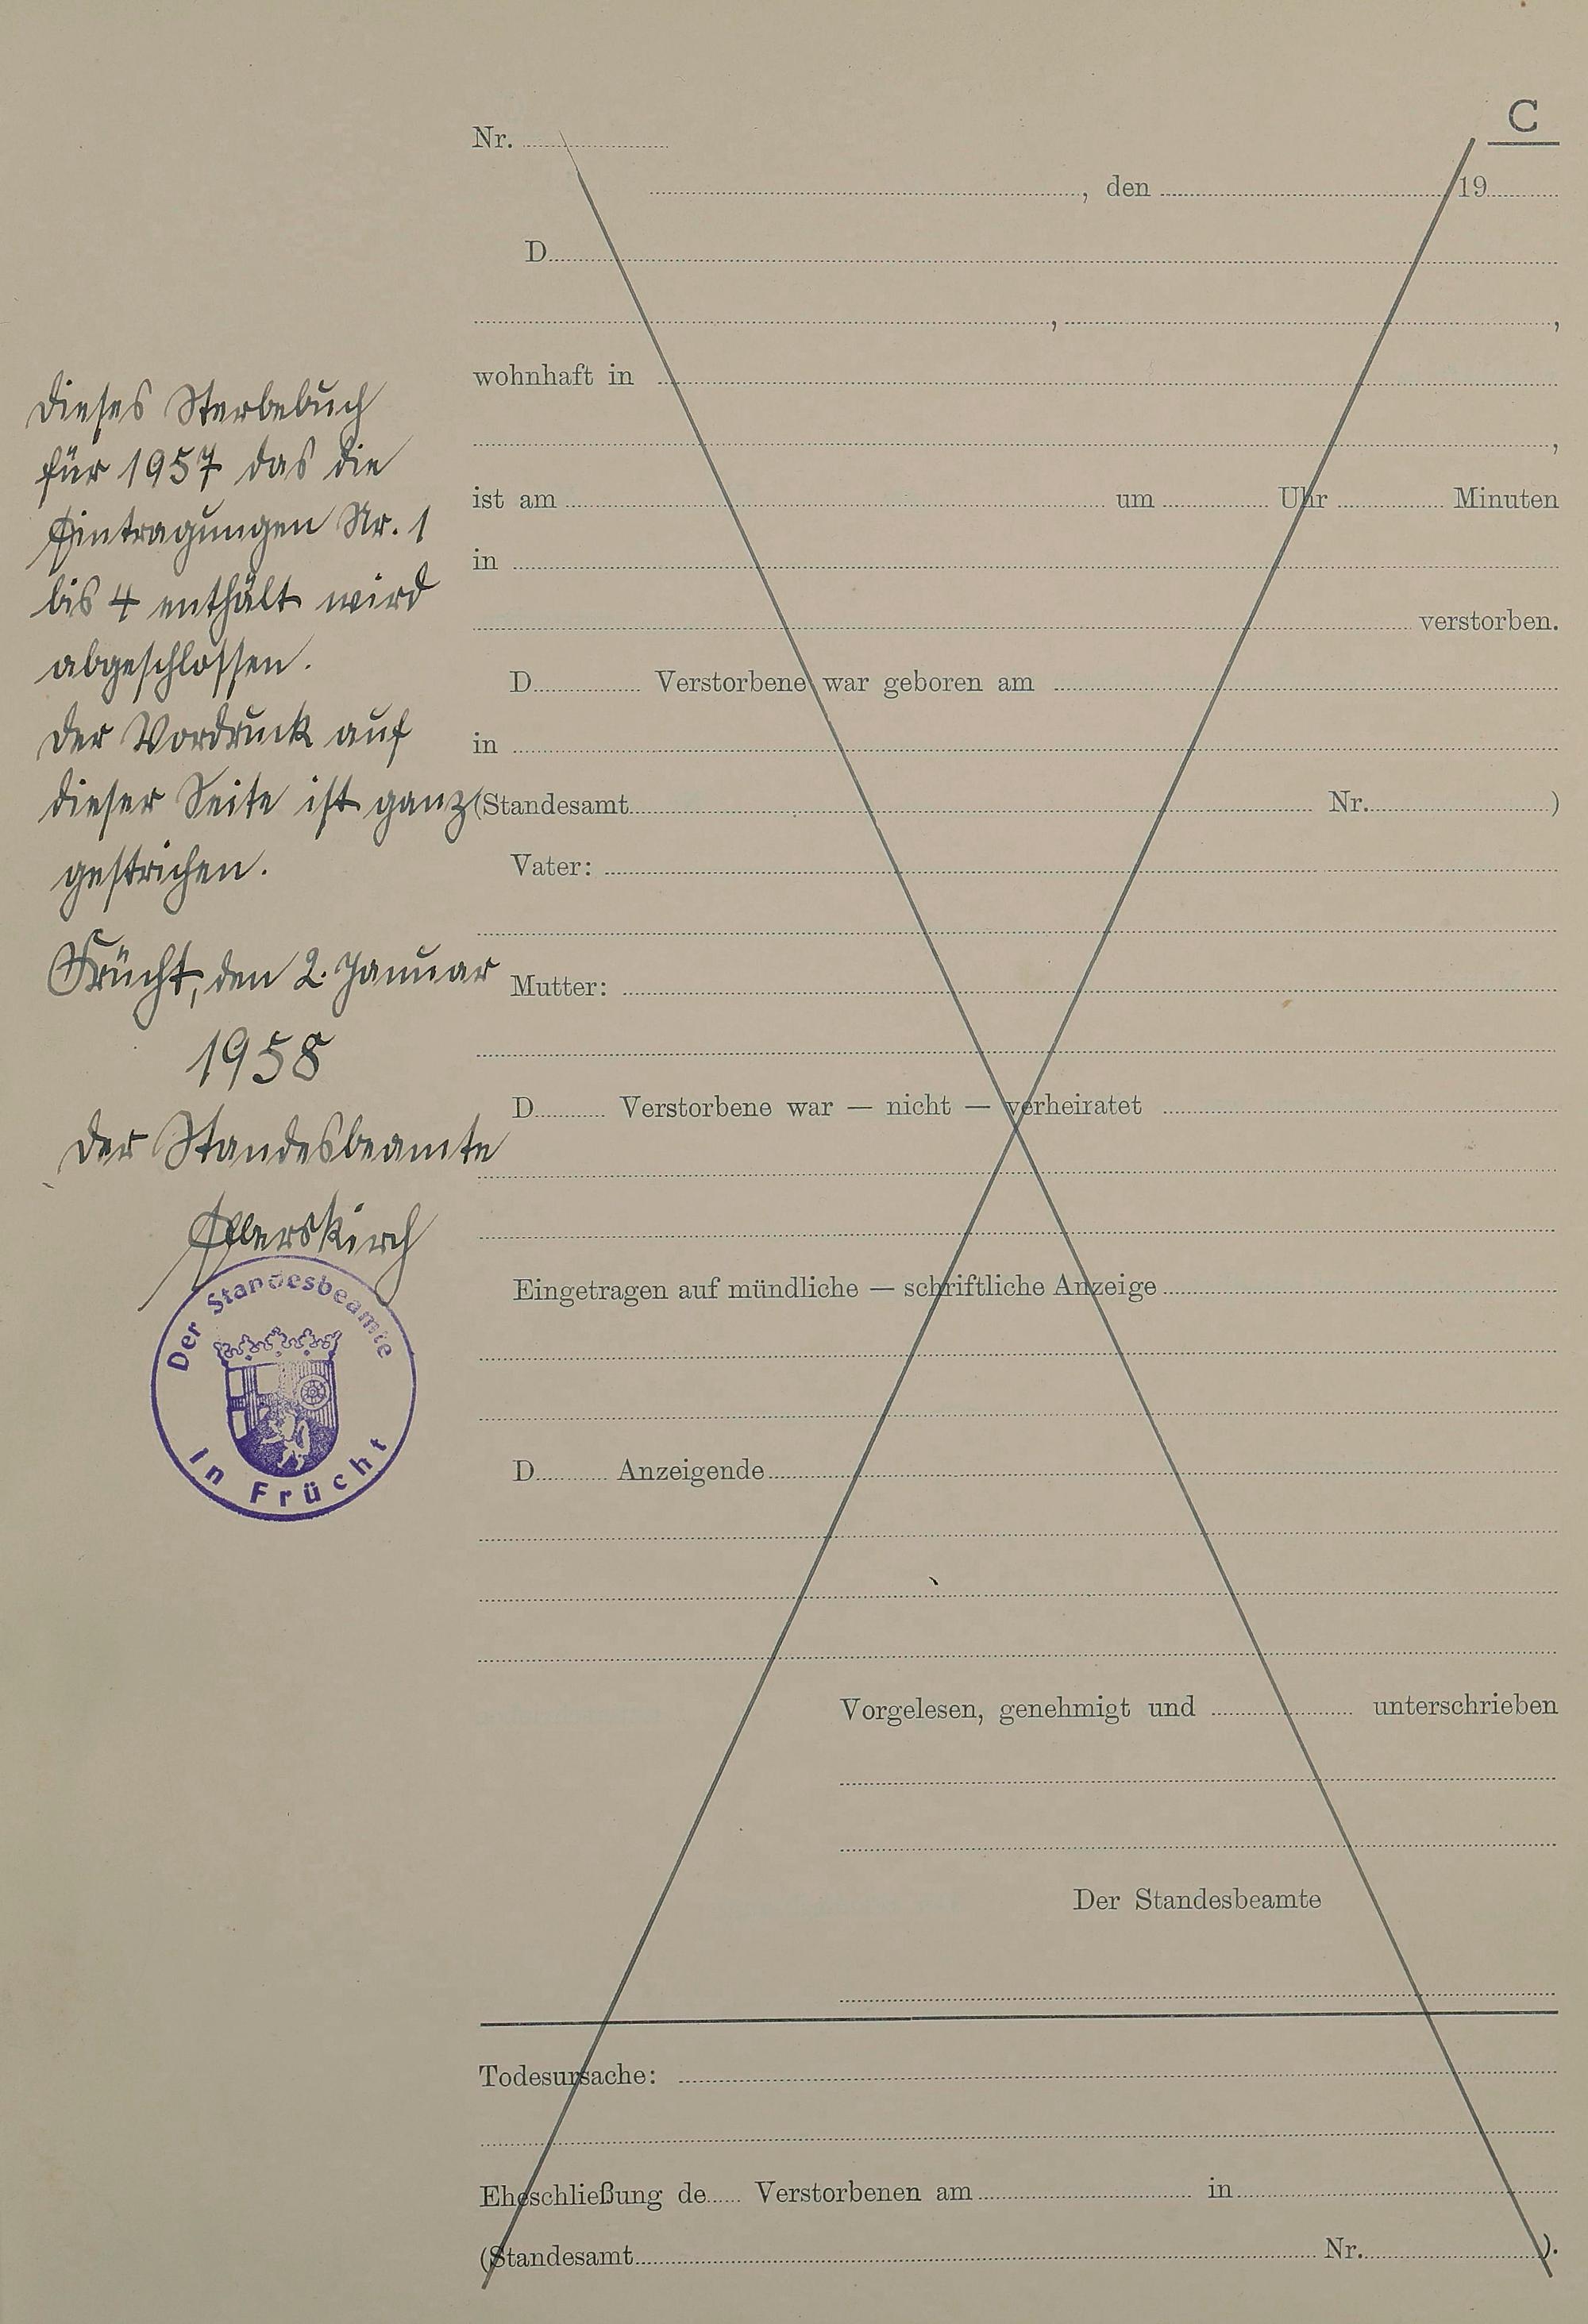 C
Nr.
, den 19
D
, ,
wohnhaft in
,
ist am um Uhr Minuten
in
verstorben.
D Verstorbene war geboren am
in
(Standesamt Nr. )
Vater:
Mutter:
D Verstorbene war — nicht — verheiratet
Eingetragen auf mündliche — schriftliche Anzeige
D Anzeigende
Vorgelesen, genehmigt und unterschrieben
Der Standesbeamte
Todesursache:
Eheschließung de Verstorbenen am in
(Standesamt Nr. ).
Dieses Sterbebuch
für 1957 das die
Eintragungen Nr. 1
bis 4 enthält wird
abgeschlossen.
Der Vordruck auf
dieser Seite ist ganz
gestrichen.
Frücht, den 2. Januar
1958
Der Standesbeamte
Der Standesbeamte
in Frücht